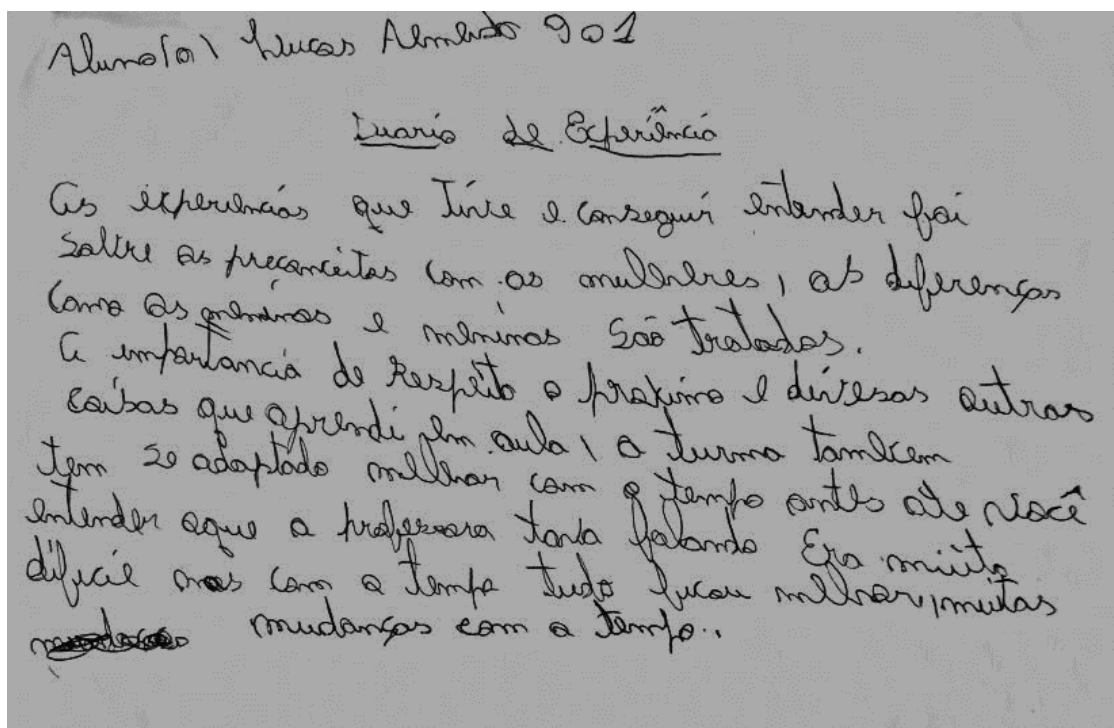 Aluno(a) Lucas Almeida 901
Diario de Experiência
As experiencias que tive e conseguir entender foi
sobre os preconceitos com as mulheres, as diferenças
como as meninas e meninos são tratados.
A importancia de Respeito o proximo e diversas outras
coisas que aprendi em aula, a turma tambem
tem se adaptado melhor com o tempo antes ate você
entender oque a professora tava falando Era muito
dificil mas com o tempo tudo ficou melhor, muitas
mudanças com o tempo..